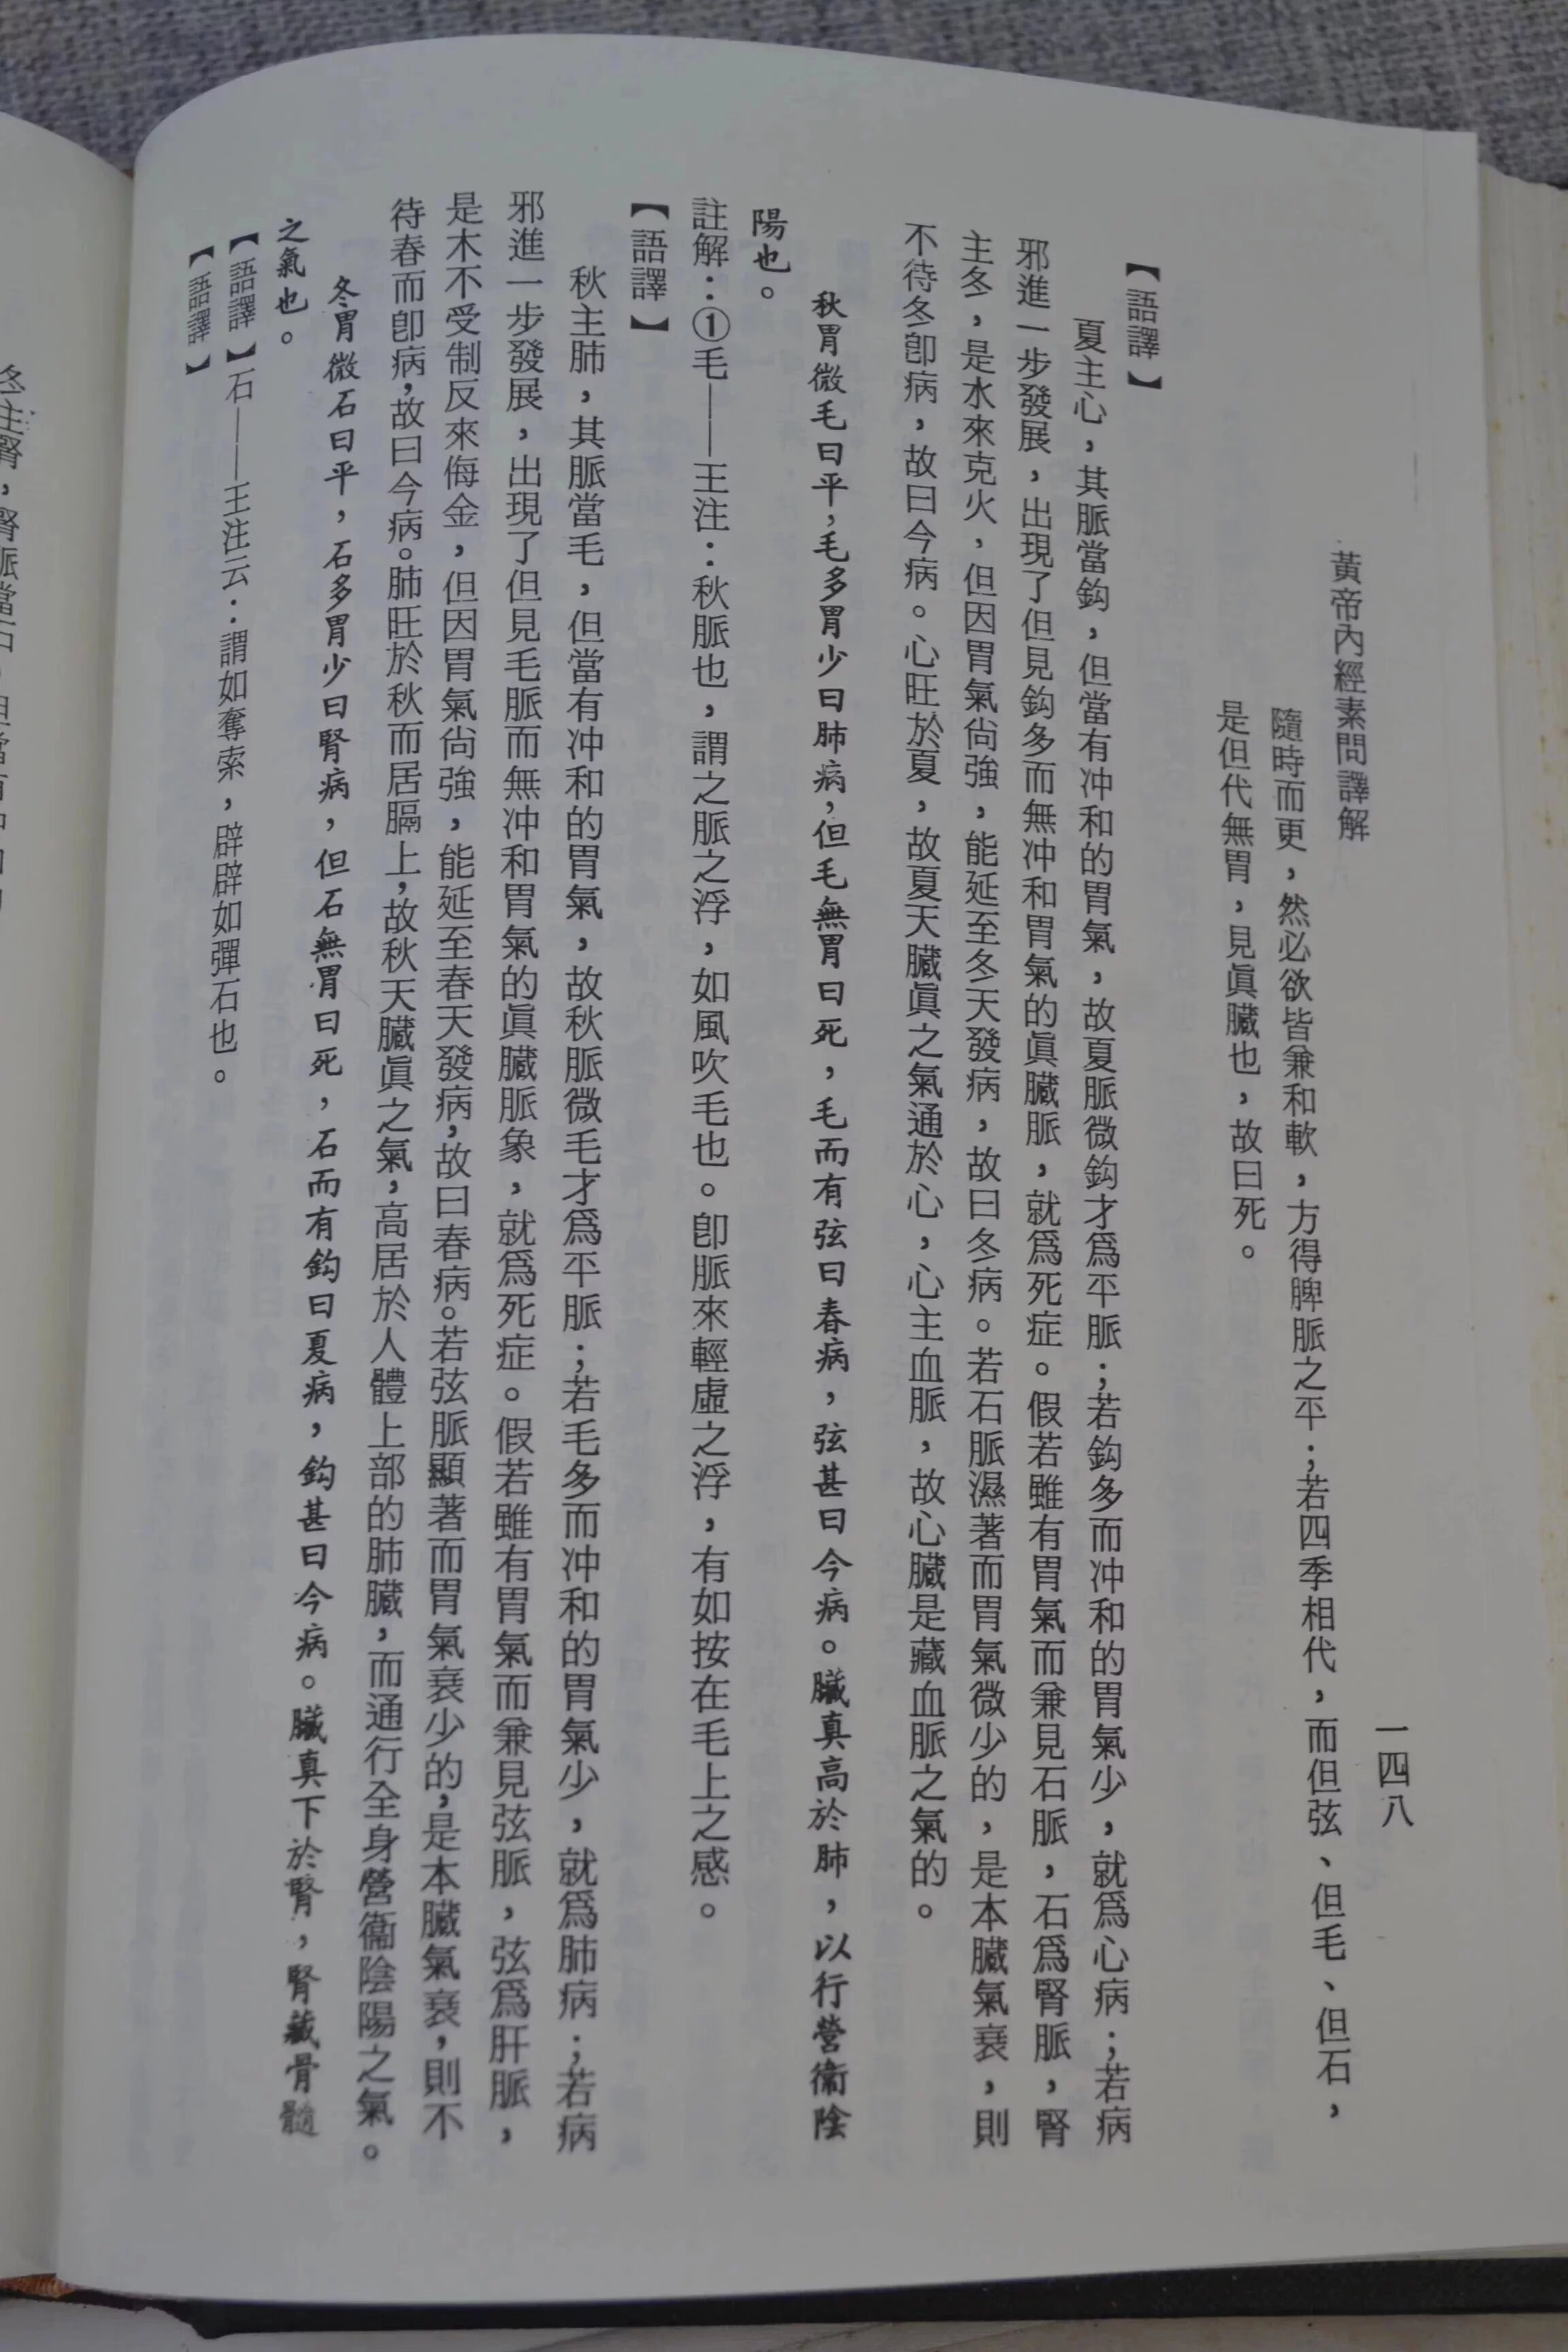 黃帝內經素問譯解
一四八
隨時而更，然必欲皆兼和軟，方得脾脈之平；若四季相代，而但弦、但毛、但石，
是但代無胃，見眞臟也，故曰死。
【語譯】
夏主心，其脈當鈎，但當有冲和的胃氣，故夏脈微鈎才爲平脈；若鈎多而冲和的胃氣少，就爲心病；若病
邪進一步發展，出現了但見鈎多而無冲和胃氣的眞臟脈，就爲死症。假若雖有胃氣而兼見石脈，石爲腎脈，腎
主冬，是水來克火，但因胃氣尙強，能延至冬天發病，故曰冬病。若石脈濕著而胃氣微少的，是本臟氣衰，則
不待冬卽病，故曰今病。心旺於夏，故夏天臟眞之氣通於心，心主血脈，故心臟是藏血脈之氣的。
秋胃微毛曰平，毛多胃少曰肺病，但毛無胃曰死，毛而有弦曰春病，弦甚曰今病。臟真高於肺，以行營衞陰
陽也。
註解：①毛——王注：秋脈也，謂之脈之浮，如風吹毛也。卽脈來輕虛之浮，有如按在毛上之感。
【語譯】
秋主肺，其脈當毛，但當有冲和的胃氣，故秋脈微毛才爲平脈；若毛多而冲和的胃氣少，就爲肺病；若病
邪進一步發展，出現了但見毛脈而無冲和胃氣的眞臟脈象，就爲死症。假若雖有胃氣而兼見弦脈，弦爲肝脈，
是木不受制反來侮金，但因胃氣尙強，能延至春天發病，故曰春病。若弦脈顯著而胃氣衰少的，是本臟氣衰，則不
待春而卽病，故曰今病。肺旺於秋而居膈上，故秋天臟眞之氣，高居於人體上部的肺臟，而通行全身營衞陰陽之氣。
冬胃微石曰平，石多胃少曰腎病，但石無胃曰死，石而有鈎曰夏病，鈎甚曰今病。臟真下於腎，腎藏骨髓
之氣也。
【語譯】石——王注云：謂如奪索，辟辟如彈石也。
【語譯】
冬主腎，腎脈當石，但當有冲和的